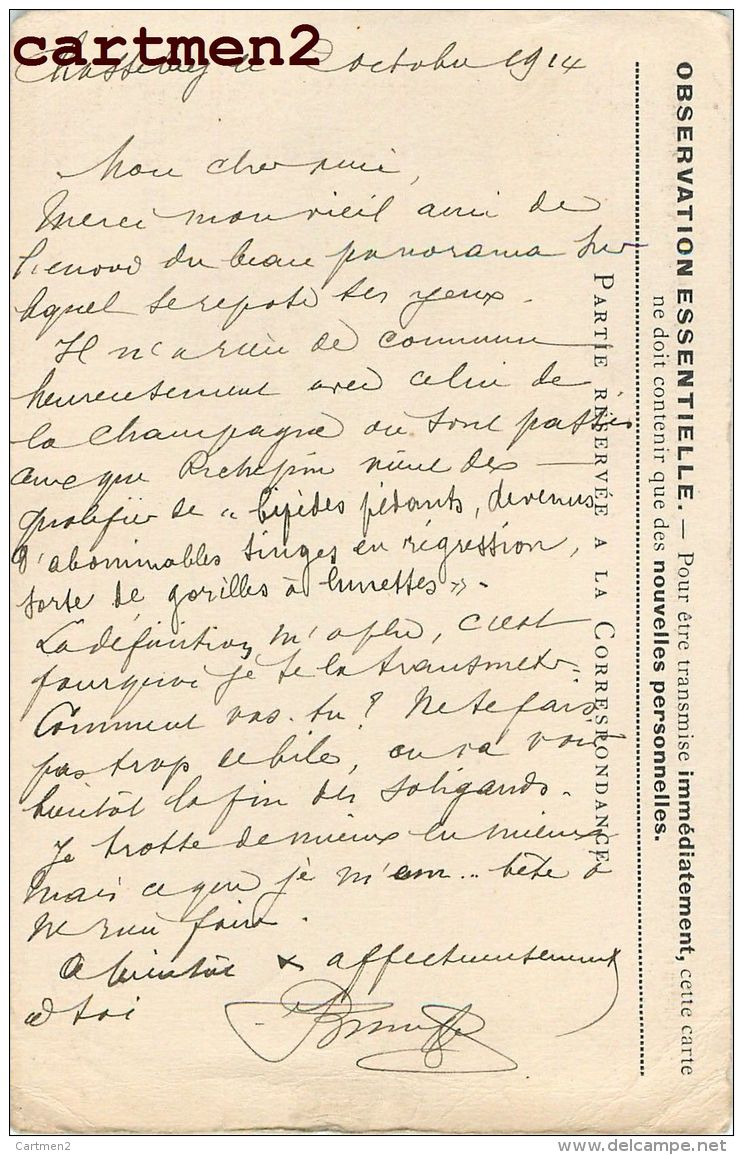 cartmen2
le 2 octobre 1914
Mon cher ami,
Merci mon vieil ami de
l'envoi du beau panorama sur
lequel se repose tes yeux.
Il n'a rien de commun
heureusement avec celui de
la Champagne où sont passés
ceux que Richepin vient de
qualifier de "bipèdes pédants, devenus
d'abominables singes en régression,
sorte de gorilles à lunettes".
La définition m'a plu, c'est
pourquoi je te la transmets.
Comment vas-tu? Ne te fais
pas trop de bile, on va voir
bientôt la fin des
Je trotte de mieux en mieux
mais ce que je m'em...bête à
ne rien faire.
A bientôt & affectueusement
à toi
OBSERVATION ESSENTIELLE. — Pour être transmise immédiatement, cette carte
ne doit contenir que des nouvelles personnelles.
PARTIE RÉSERVÉE A LA CORRESPONDANCE
Cartmen2
www.delcampe.net